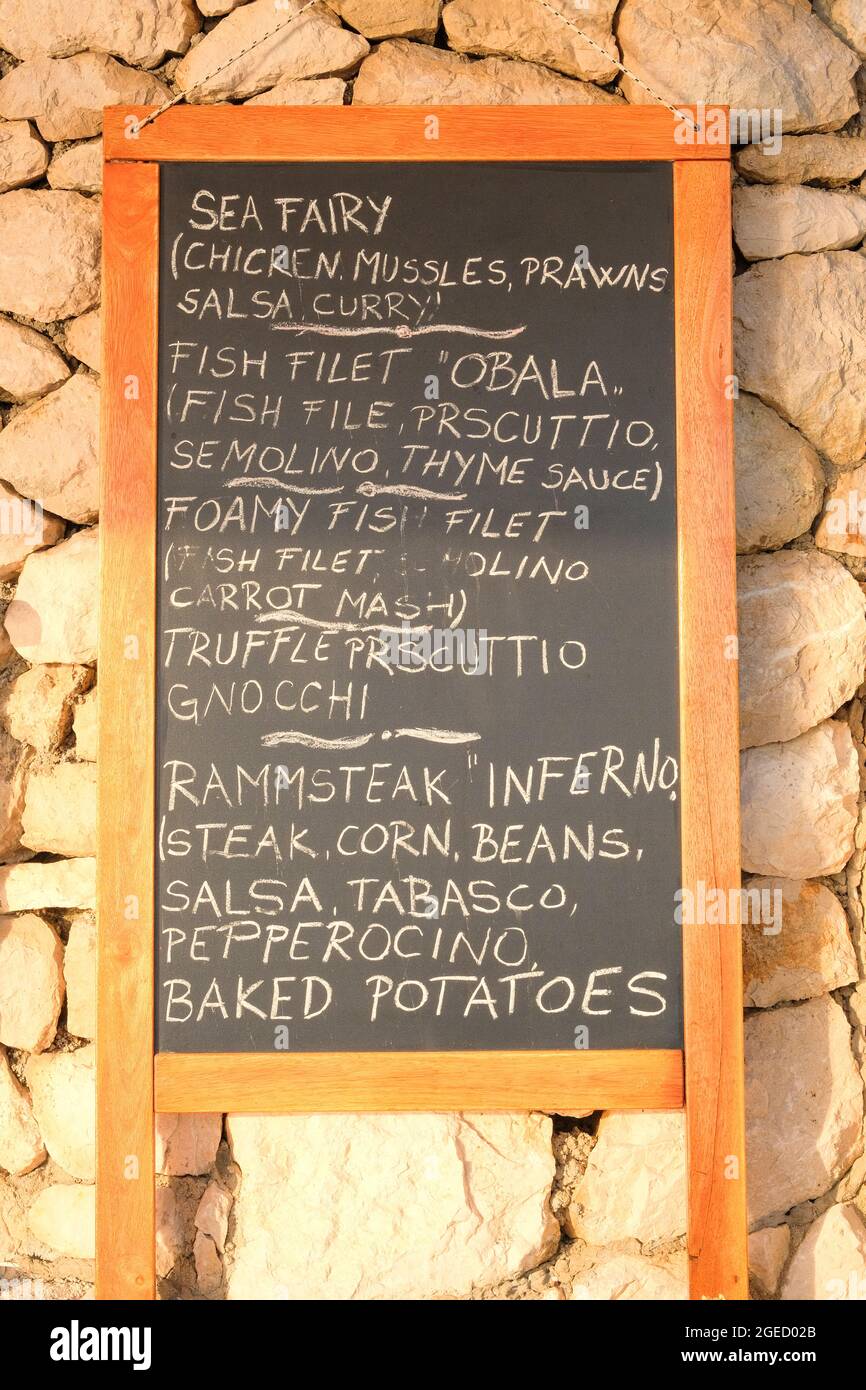 SEA FAIRY
(CHICKEN. MUSSLES, PRAWNS
SALSA, CURRY)
FISH FILET "OBALA„
(FISH FILE, PRSCUTTIO,
SEMOLINO, THYME SAUCE)
FOAMY FISH FILET
(FISH FILET,
CARROT MASH)
TRUFFLE PRSCUTTIO
GNOCCHI
RAMMSTEAK "INFERNO„
(STEAK, CORN, BEANS,
SALSA, TABASCO,
PEPPEROCINO,
BAKED POTATOES
alamy
Image ID: 2GED02B
www.alamy.com